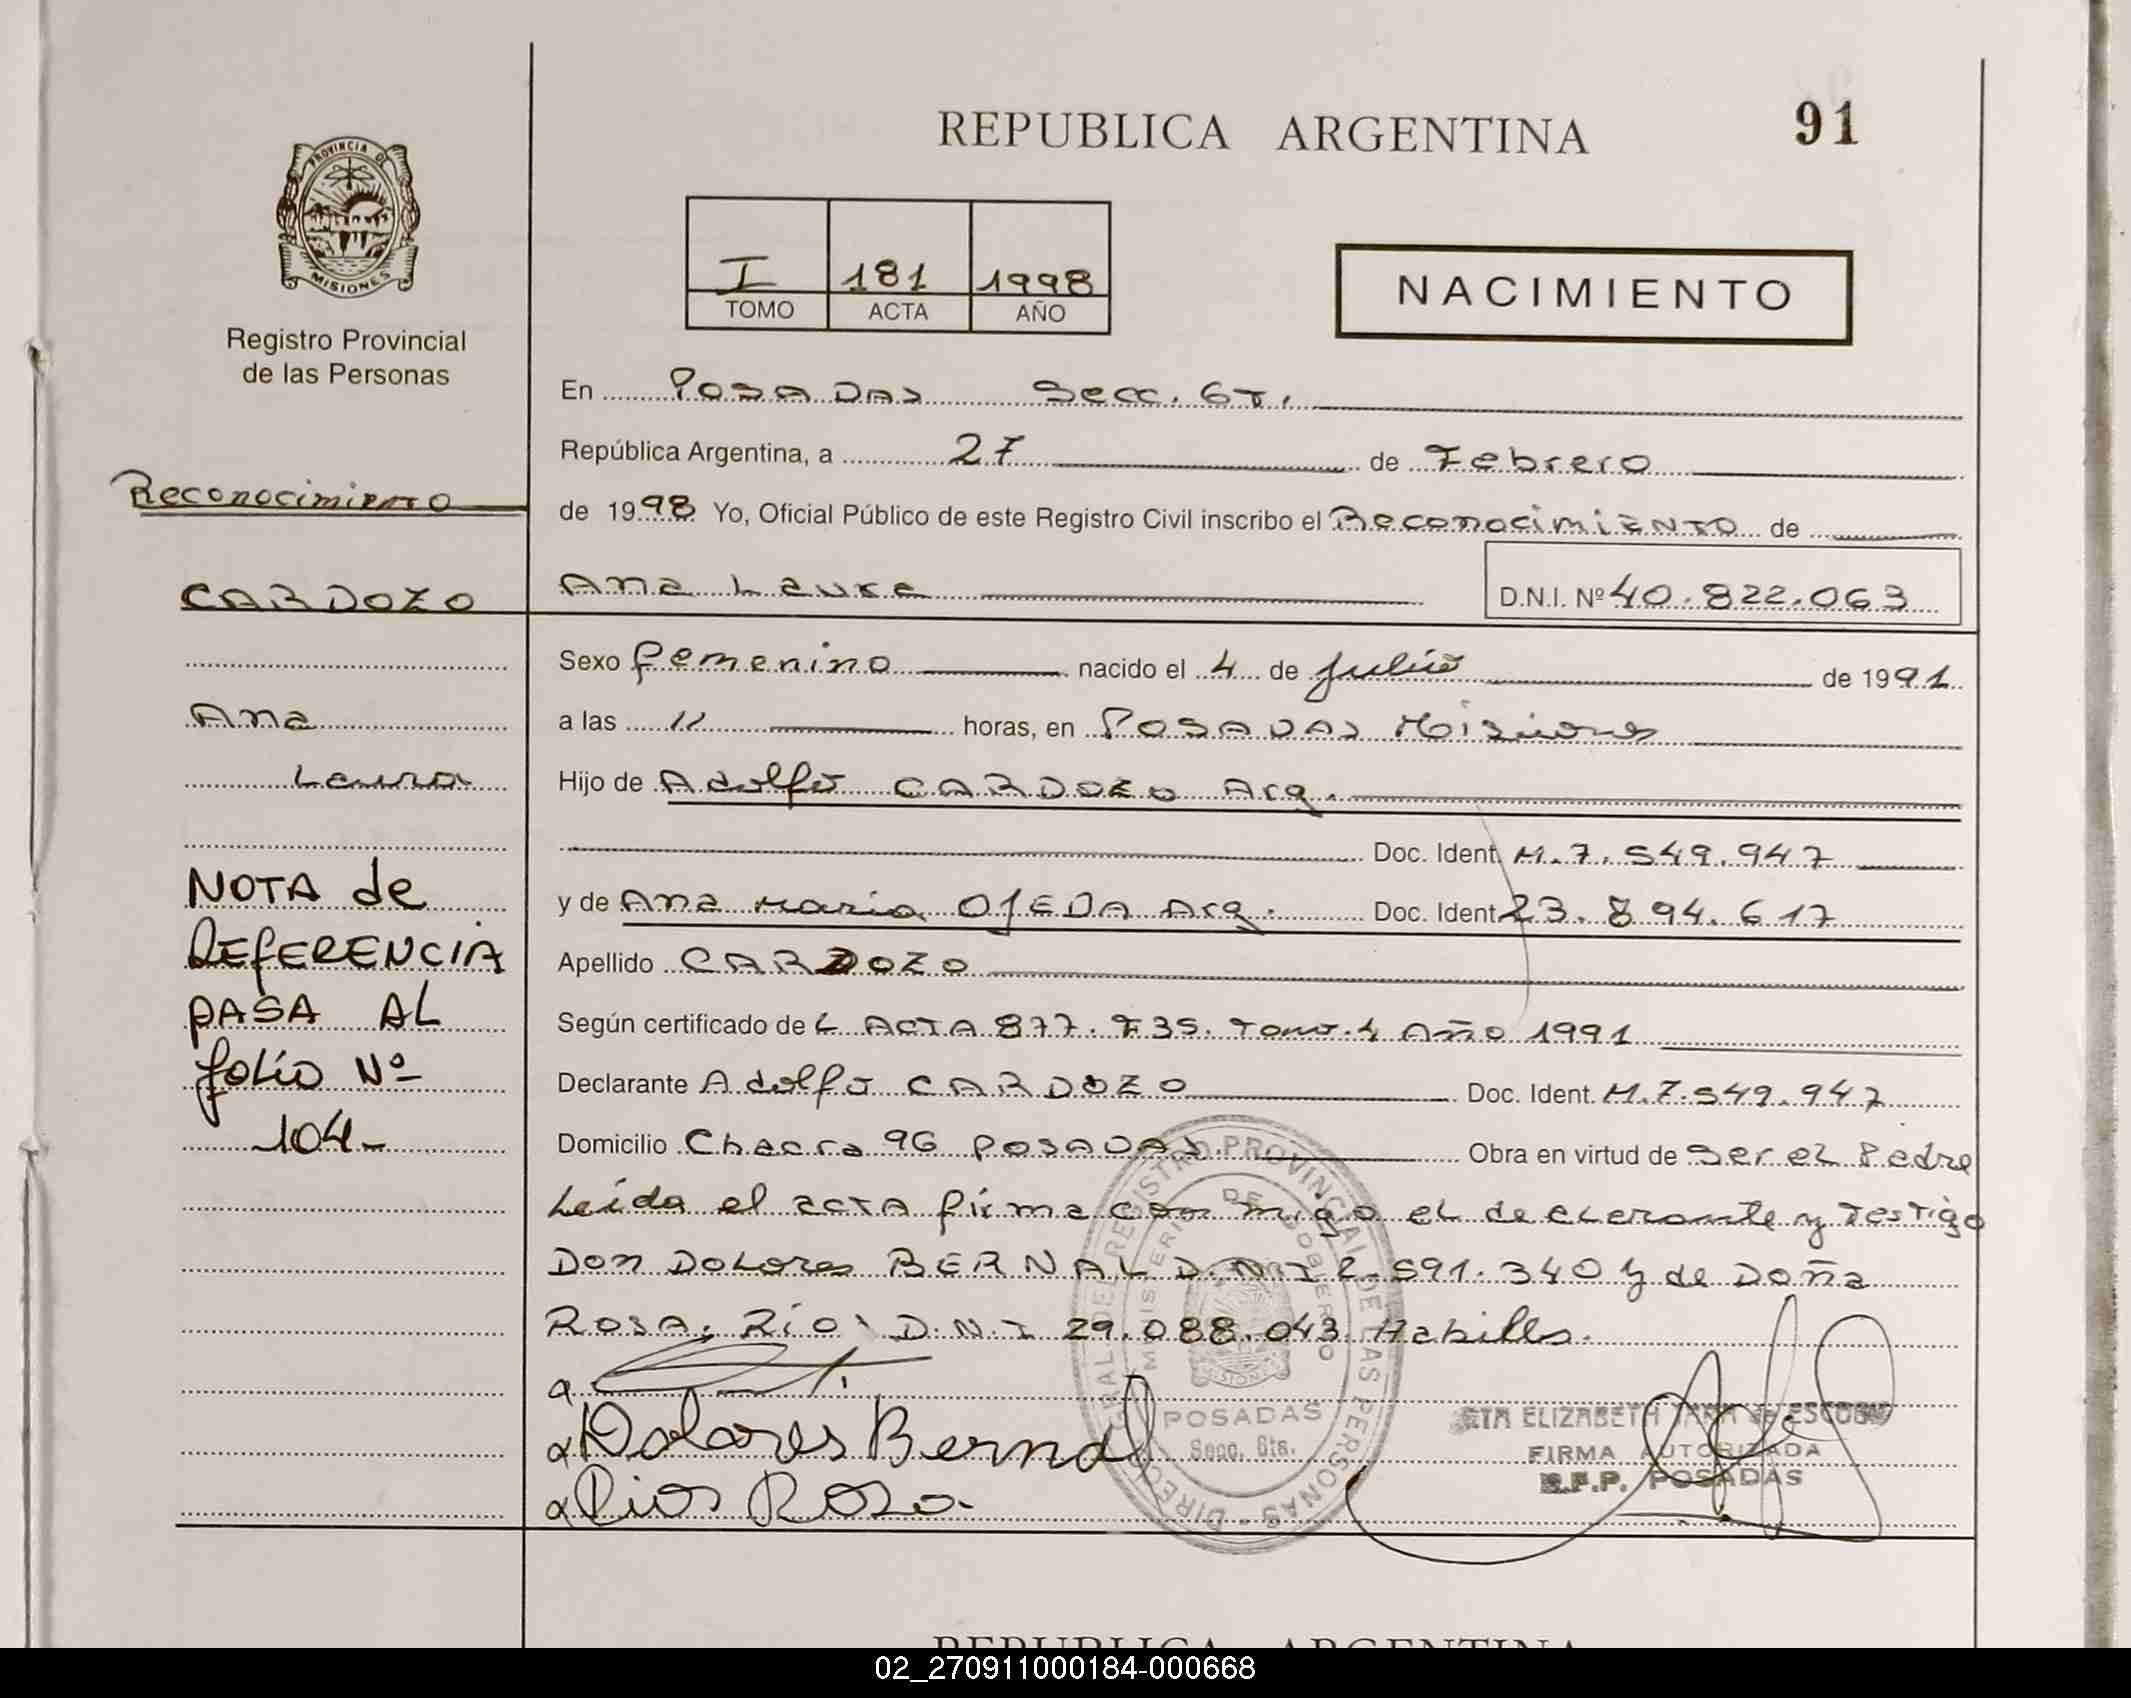 REPUBLICA ARGENTINA
91
PROVINCIA DE
MISIONES
Registro Provincial
de las Personas
I 181 1998
TOMO ACTA AÑO
NACIMIENTO
Reconocimiento
CARDOZO
Ana
Laura
NOTA de
REfERENCIA
PASA AL
folio Nº
104-
En Posadas Secc. 6T.
República Argentina, a 27 de Febrero
de 1998 Yo, Oficial Público de este Registro Civil inscribo el Reconocimiento de
Ana Laura D.N.I. Nº 40.822.063
Sexo femenino nacido el 4 de julio de 1991
a las 11 horas, en POSADAS Misiones
Hijo de Adolfo CARDOZO Arg.
Doc. Ident. M.7.549.947
y de Ana Maria OJEDA Arg. Doc. Ident. 23.894.617
Apellido CARDOZO
Según certificado de L ACTA 877. F35. Tomo.4 Año 1991
Declarante Adolfo CARDOZO Doc. Ident. M.7.549.947
Domicilio Chacra 96 POSADAS. Obra en virtud de ser el Padre
Leida el acta firma con migo el declarante y Testigo
Don Dolores BERNAL D.N.I 2.591.340 y de Doña
ROSA. RIOS D.N.I 29.088.043 Habilles.
a
a Dolores Bernal
a Rios Rosa.
DIRECC GRAL DEL REGISTRO PROVINCIAL DE LAS PERSONAS
MINISTERIO DE GOBIERNO
POSADAS
Secc. 6ta.
ELIZABETH JARA de ESCOBAR
FIRMA AUTORIZADA
R.P.P. POSADAS
REPUBLICA ARGENTINA
02_270911000184-000668